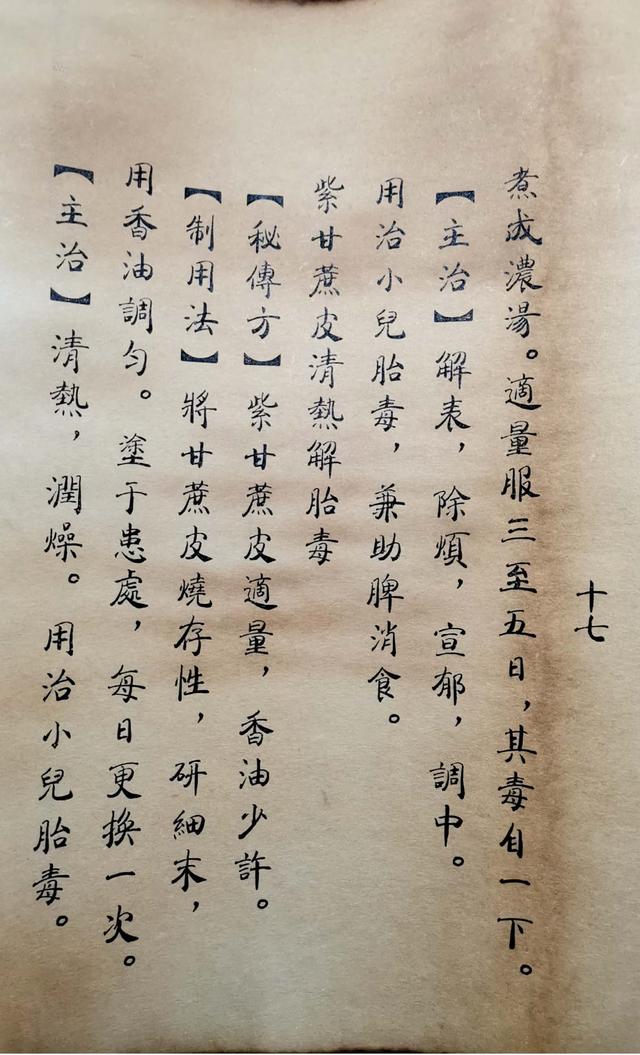 十七
煮成濃湯。適量服三至五日，其毒自一下。
【主治】解表，除煩，宣郁，調中。
用治小兒胎毒，兼助脾消食。
紫甘蔗皮清熱解胎毒
【秘傳方】紫甘蔗皮適量，香油少許。
【制用法】將甘蔗皮燒存性，研細末，
用香油調勻。塗于患處，每日更換一次。
【主治】清熱，潤燥。用治小兒胎毒。